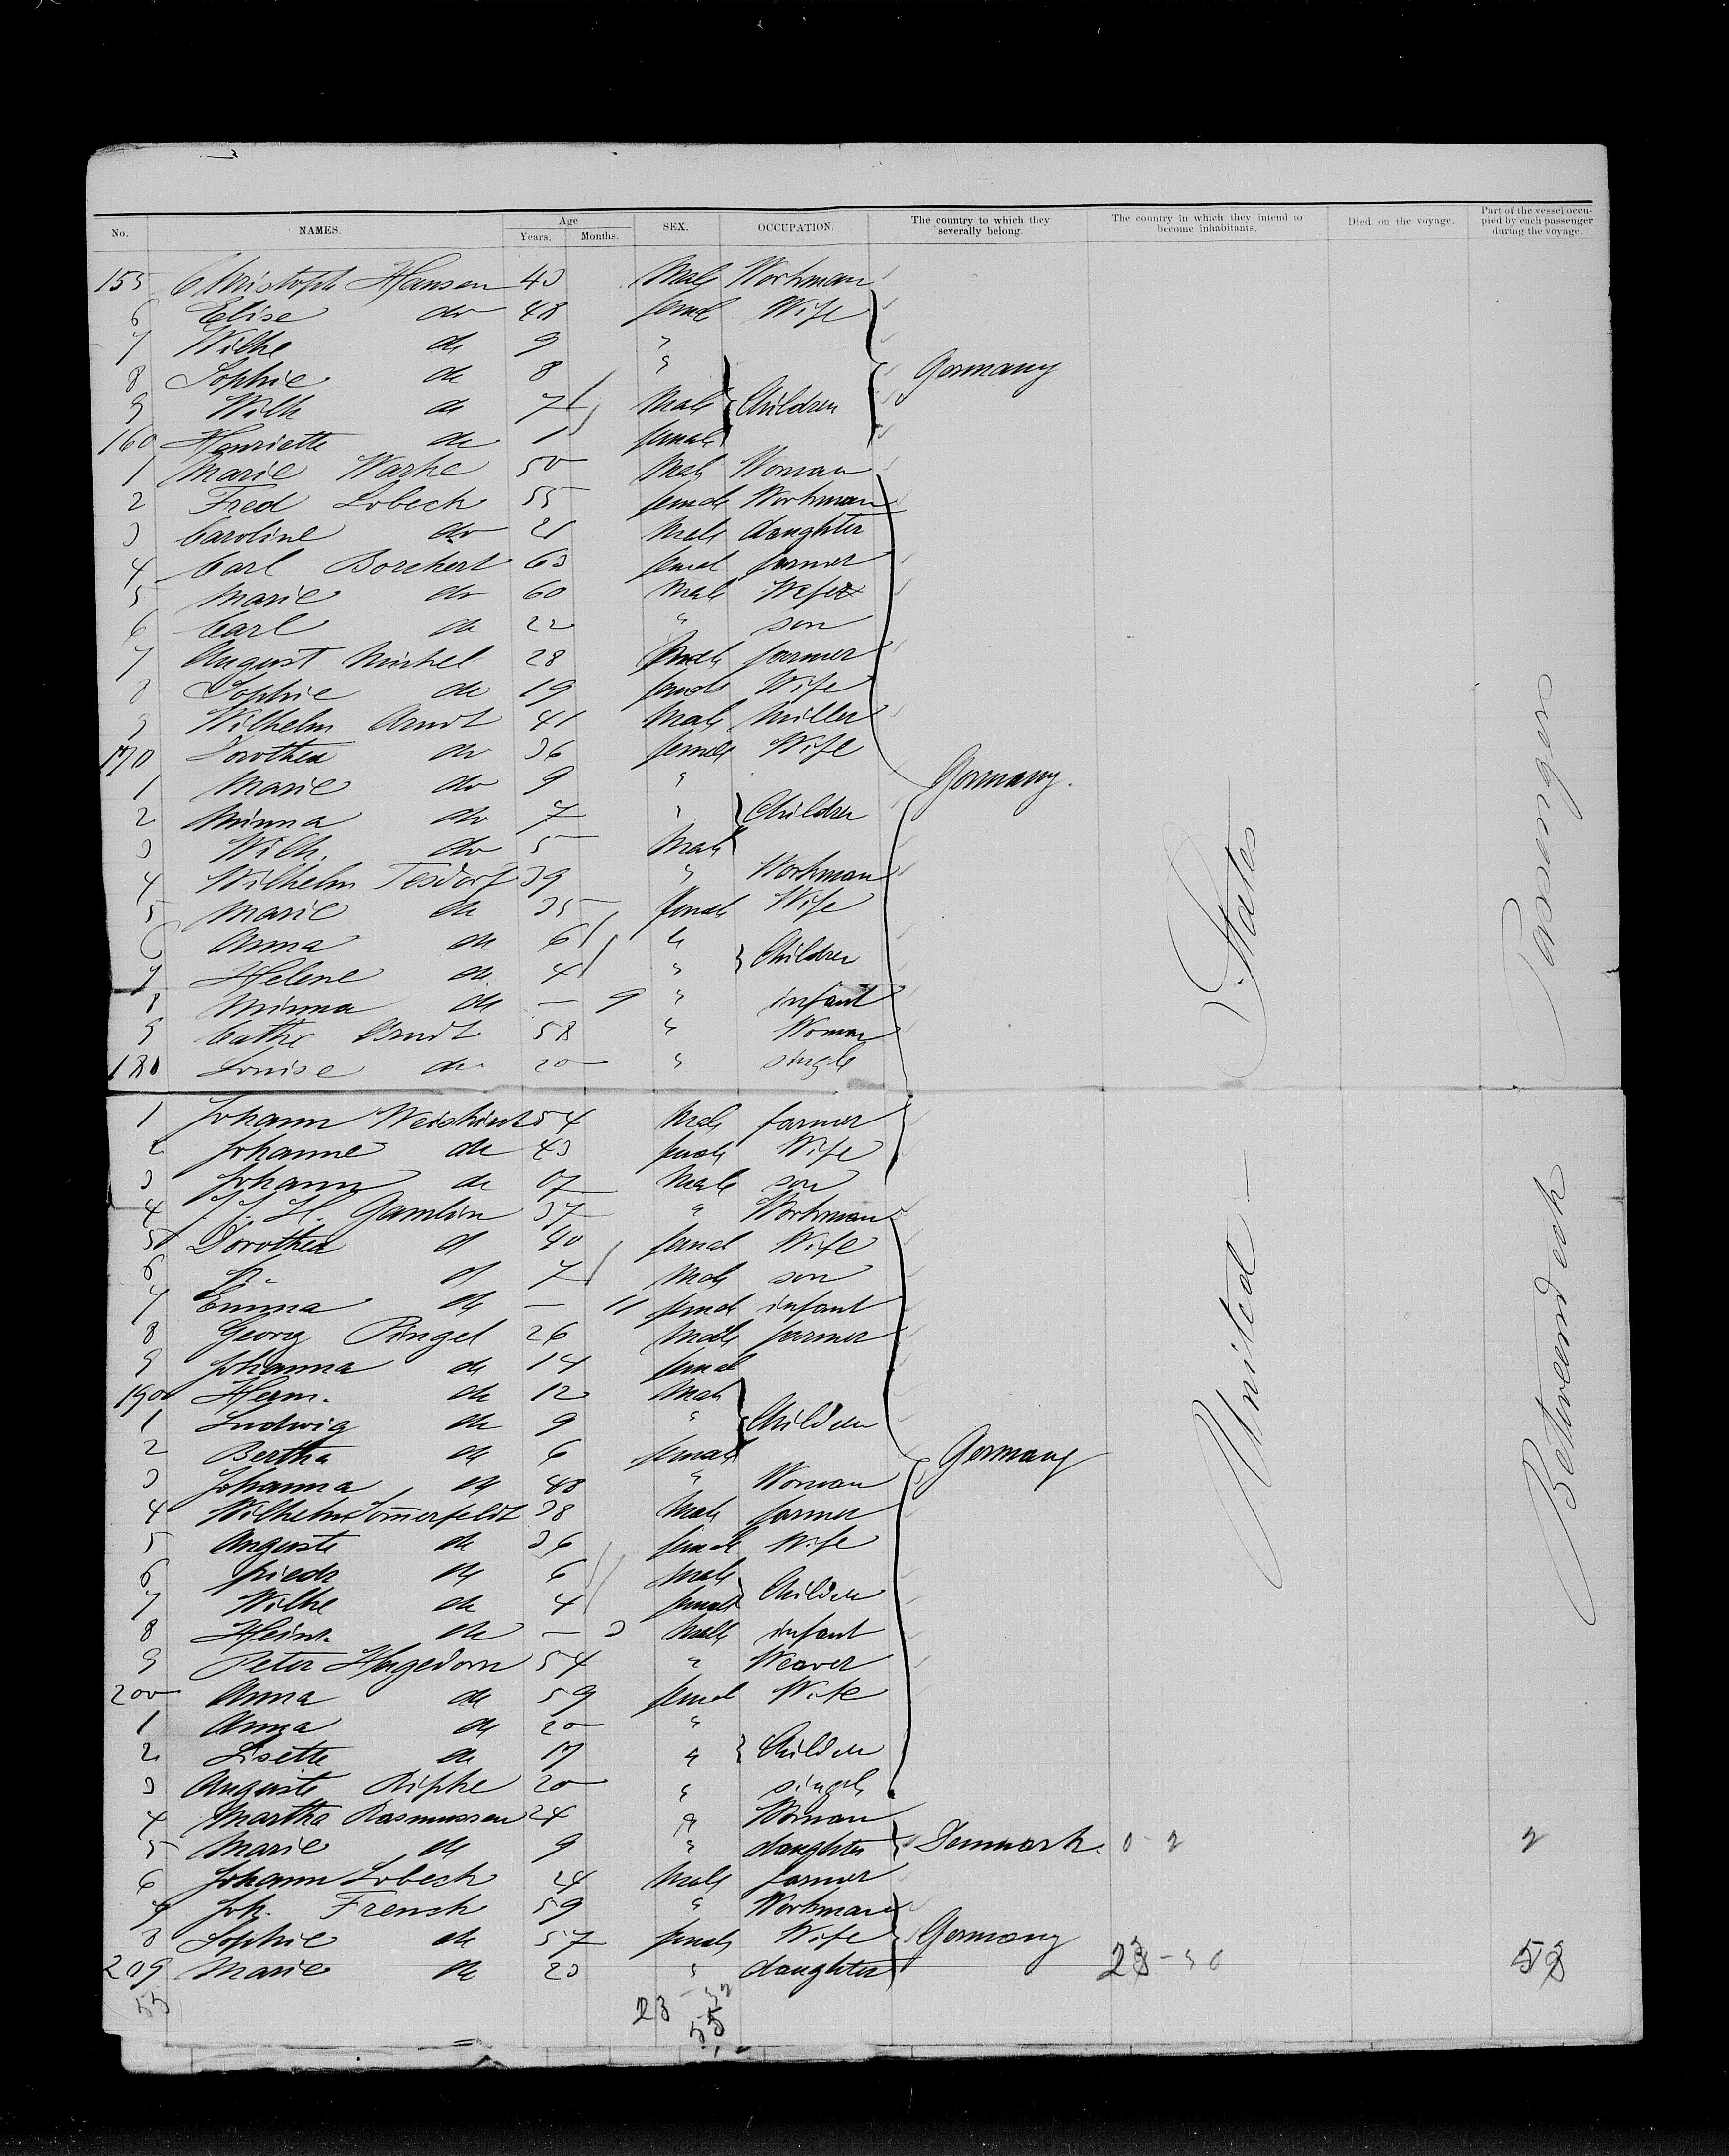 No. NAMES. Age Years. Months. SEX. OCCUPATION. The country to which they severally belong. The country in which they intend to become inhabitants. Died on the voyage. Part of the vessel occupied by each passenger during the voyage.
155 Christoph Hansen 43 Male Workman
6 Elise do 48 female Wife
7 Wilhe do 9 "
8 Sophie do 8 " Germany
9 Wilh do 7 Male Children
160 Henriette do 1 female
1 Marie Warke 50 Male Woman
2 Fred Lobeck 55 female Workman
3 Caroline do 21 Male daughter
4 Carl Borchert 63 femal farmer
5 Marie do 60 Male Wife
6 Carl do 22 " son
7 August Michel 28 Male farmer
8 Sophie do 19 female Wife
9 Wilhelm Arndt 41 Male Miller
170 Dorothea do 36 female Wife
1 Marie do 9 " Germany.
2 Minna do 7 " Children
3 Wilh. do 5 Male
4 Wilhelm Tesdorf 39 " Workman
5 Marie do 35 female Wife
6 Anna do 6 "
7 Helene do 4 " Children
8 Minna do — 9 " infant
9 Cathe Arndt 58 " Woman
180 Louise do 20 " single
1 Johann 54 Male farmer
2 Johanne do 43 female Wife
3 Johann do 07 Male son
4 J. H. Gamlin 37 " Workman
5 Dorothea d 40 femal Wife
6 d 7 Male son
7 Emma do — 11 female infant
8 Georg Ringel 26 Male farmer
9 Johanna do 14 femal
190 Herm. do 12 Male
1 Ludwig do 9 " Children
2 Bertha do 6 female Germany
3 Johanna do 48 " Woman
4 Wilhelm Som̄erfeldt 38 Male farmer
5 Auguste do 36 female Wife
6 friedr do 6 Male
7 Wilhe do 4 female Children
8 Heinr. do — 3 Male infant
9 Peter Hagedorn 54 " Weaver
200 Anna do 59 femal Wife
1 Anna do 20 "
2 Lisette do 17 " Children
3 Auguste Ripke 20 " single
4 Martha Rasmussen 24 " Woman
5 Marie do 9 " daughter Denmark. 0 - 2 2
6 Johann Lobeck 24 Male farmer
7 Joh. French 59 " Workman
8 Sophie do 57 female Wife Germany
209 Marie do 23 " daughter 23 - 30 53
55 23 - 32
55
United States
Betweendeck Passengers